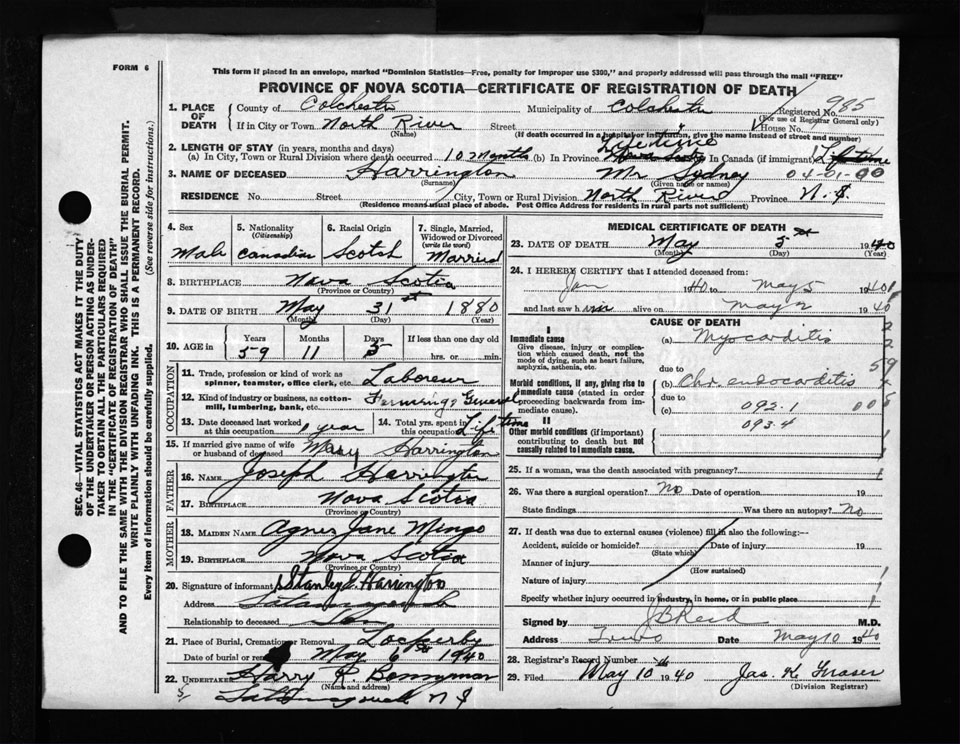 FORM 6
This form if placed in an envelope, marked "Dominion Statistics—Free, penalty for improper use $300," and properly addressed will pass through the mail "FREE"
PROVINCE OF NOVA SCOTIA—CERTIFICATE OF REGISTRATION OF DEATH
SEC. 46—VITAL STATISTICS ACT MAKES IT THE DUTY
OF THE UNDERTAKER OR PERSON ACTING AS UNDER-
TAKER TO OBTAIN ALL THE PARTICULARS REQUIRED
IN THE "CERTIFICATE OF REGISTRATION OF DEATH"
AND TO FILE THE SAME WITH THE DIVISION REGISTRAR WHO SHALL ISSUE THE BURIAL PERMIT.
WRITE PLAINLY WITH UNFADING INK. THIS IS A PERMANENT RECORD.
Every item of information should be carefully supplied. (See reverse side for instructions.)
1. PLACE OF DEATH County of Colchester Municipality of Colchester Registered No. 985
(For use of Registrar General only)
If in City or Town North River Street House No.
(Name) (If death occurred in a hospital or institution, give the name instead of street and number)
2. LENGTH OF STAY (in years, months and days)
(a) In City, Town or Rural Division where death occurred 10 Months (b) In Province Lifetime Nova Scotia In Canada (if immigrant) Lifetime
3. NAME OF DECEASED Harrington Mr Sydney 04-01-00
(Surname) (Given name or names)
RESIDENCE No. Street City, Town or Rural Division North River Province N.S.
(Residence means usual place of abode. Post Office Address for residents in rural parts not sufficient)
4. Sex Male
5. Nationality (Citizenship) Canadian
6. Racial Origin Scotch
7. Single, Married, Widowed or Divorced (write the word) Married
8. BIRTHPLACE Nova Scotia
(Province or Country)
9. DATE OF BIRTH May 31st 1880
(Month) (Day) (Year)
10. AGE in Years 59 Months 11 Days 5 If less than one day old hrs. or min.
OCCUPATION
11. Trade, profession or kind of work as spinner, teamster, office clerk, etc. Laboreur
12. Kind of industry or business, as cotton-mill, lumbering, bank, etc. Farming & General
13. Date deceased last worked at this occupation 1 year
14. Total yrs. spent in this occupation Lifetime
15. If married give name of wife or husband of deceased Mary Harrington
FATHER
16. NAME Joseph Harrington
17. BIRTHPLACE Nova Scotia
(Province or Country)
MOTHER
18. MAIDEN NAME Agnes Jane Mingo
19. BIRTHPLACE Nova Scotia
(Province or Country)
20. Signature of informant Stanley Harrington
Address Tatamagouche
Relationship to deceased Son
21. Place of Burial, Cremation or Removal Lockerby
Date of burial or removal May 6th 1940
22. UNDERTAKER Harry R. Bonnyman
(Name and address)
Tatamagouche N S
MEDICAL CERTIFICATE OF DEATH
23. DATE OF DEATH May 5 1940
(Month) (Day)
24. I HEREBY CERTIFY that I attended deceased from:
Jan 1940 to May 5 1940
and last saw him alive on May 2 1940
CAUSE OF DEATH
I
Immediate cause
Give disease, injury or complication which caused death, not the mode of dying, such as heart failure, asphyxia, asthenia, etc.
(a) Myocarditis
due to
Morbid conditions, if any, giving rise to immediate cause (stated in order proceeding backwards from immediate cause).
(b) Chr. endocarditis
due to
(c) 092.1
093.4
II
Other morbid conditions (if important) contributing to death but not causally related to immediate cause.
25. If a woman, was the death associated with pregnancy?
26. Was there a surgical operation? No Date of operation 19
State findings Was there an autopsy? No
27. If death was due to external causes (violence) fill in also the following:—
Accident, suicide or homicide? Date of injury 19
(State which)
Manner of injury
(How sustained)
Nature of injury
Specify whether injury occurred in industry, in home, or in public place
Signed by J B Reid M.D.
Address Truro Date May 10 1940
28. Registrar's Record Number
29. Filed May 10 1940 Jas. H. Fraser
(Division Registrar)